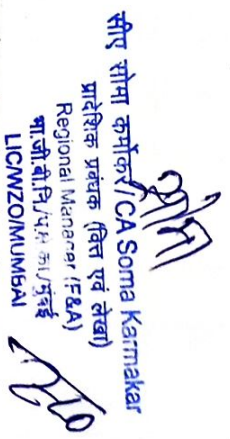 सीए सोमा कर्मोकर/CA Soma Karmakar
प्रादेशिक प्रबंधक (वित्त एवं लेखा)
Regional Manager (F&A)
भा.जी.बी.नि/प.क्षे.का/मुंबई
LIC/WZO/MUMBAI